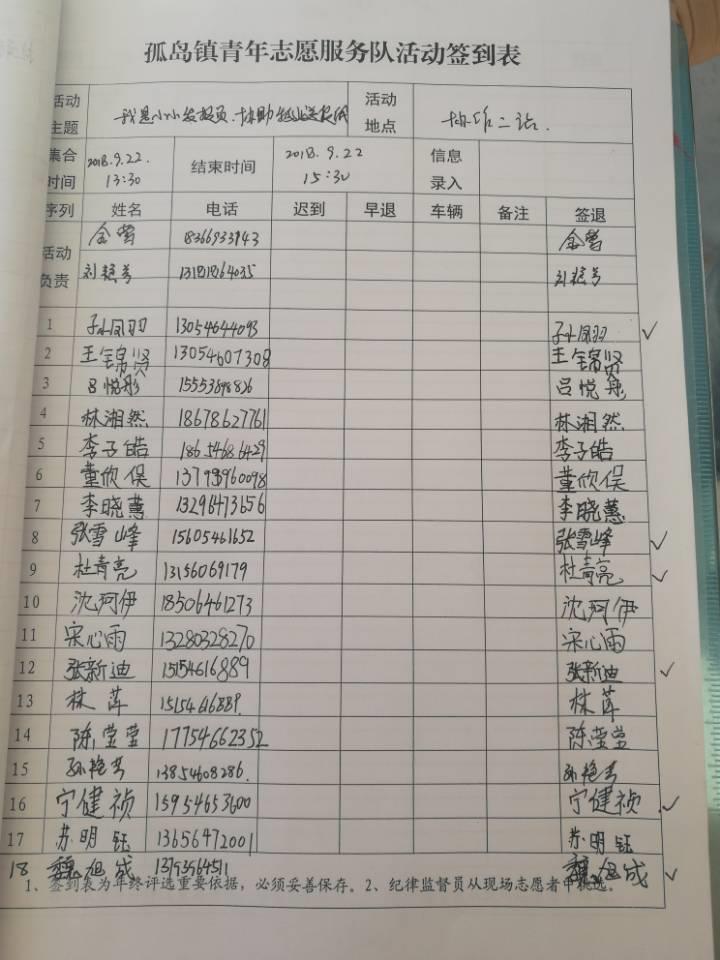 孤岛镇青年志愿服务队活动签到表
活动主题 我是小小发报员.协助 送报纸 活动地点 二站.
集合时间 2018.9.22. 13:30 结束时间 2018.9.22 15:30 信息录入
序列 姓名 电话 迟到 早退 车辆 备注 签退
活动负责 金莺 金莺
刘艳芳 刘艳芳
1 孙凤羽 13054644093 孙凤羽 ✓
2 王锦贤 13054607308 王锦贤
3 吕悦彤 吕悦彤
4 林湘然 18678627761 林湘然
5 李子皓 18654686429 李子皓
6 董欣俣 董欣俣
7 李晓蕙 李晓蕙
8 张雪峰 15605461652 张雪峰 ✓
9 杜青亮 13156069179 杜青亮 ✓
10 沈珂伊 18506461273 沈珂伊
11 宋心雨 13280328270 宋心雨
12 张新迪 15154616889 张新迪 ✓
13 林萍 林萍
14 陈莹莹 17754662352 陈莹莹
15 孙艳芳 13854608286. 孙艳芳
16 宁健祯 15954653600 宁健祯 ✓
17 苏明钰 13656472001 苏明钰
18 魏旭成 魏旭成 ✓
1、签到表为年终评选重要依据，必须妥善保存。2、纪律监督员从现场志愿者中挑选。